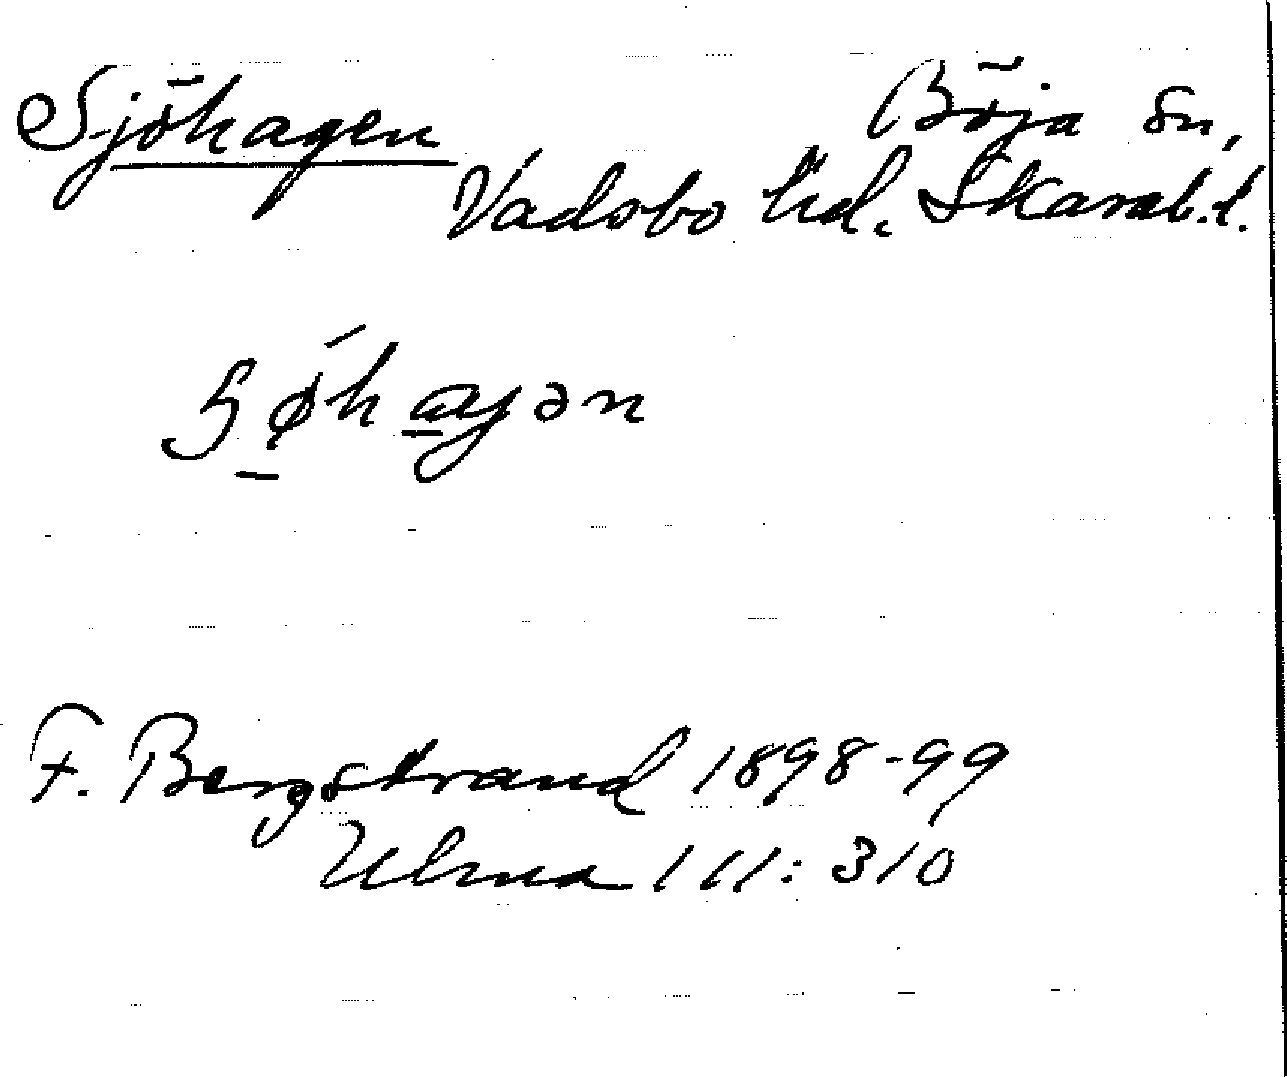 Sjöhagen Böja Sn,
Vadsbo hd. Skarab.l.
ʂǿ̱ha̱gən
F. Bergstrand 1898-99
Ulma 111:310